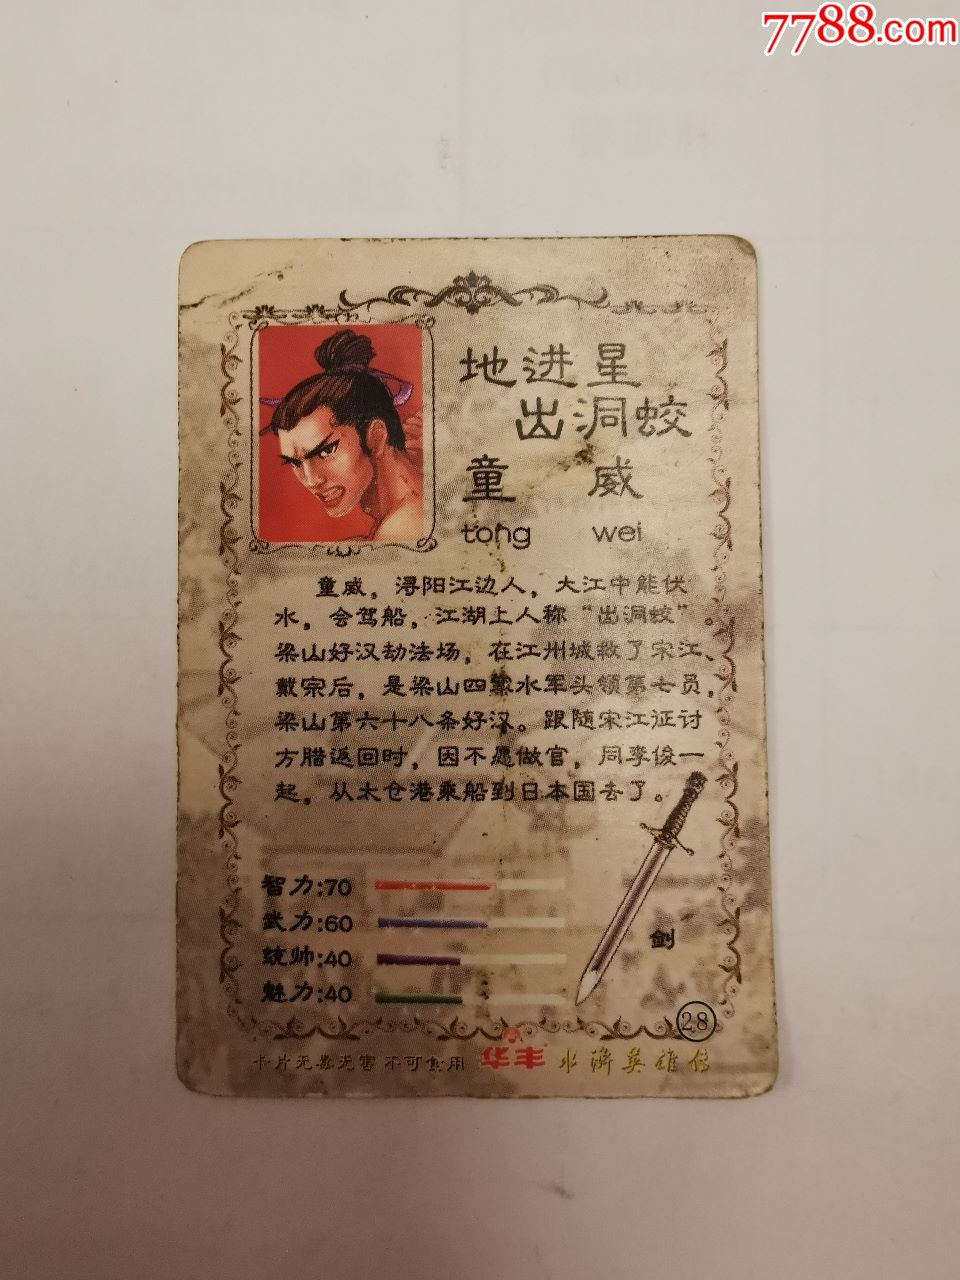 7788.com
地进星
出洞蛟
童 威
tong wei
童威，浔阳江边人，大江中能伏
水，会驾船，江湖上人称“出洞蛟”。
梁山好汉劫法场，在江州城救了宋江、
戴宗后，是梁山四寨水军头领第七员，
梁山第六十八条好汉。跟随宋江征讨
方腊返回时，因不愿做官，同李俊一
起，从太仓港乘船到日本国去了。
智力:70
武力:60
统帅:40
魅力:40
剑
28
卡片无毒无害 不可食用 华丰 水浒英雄传